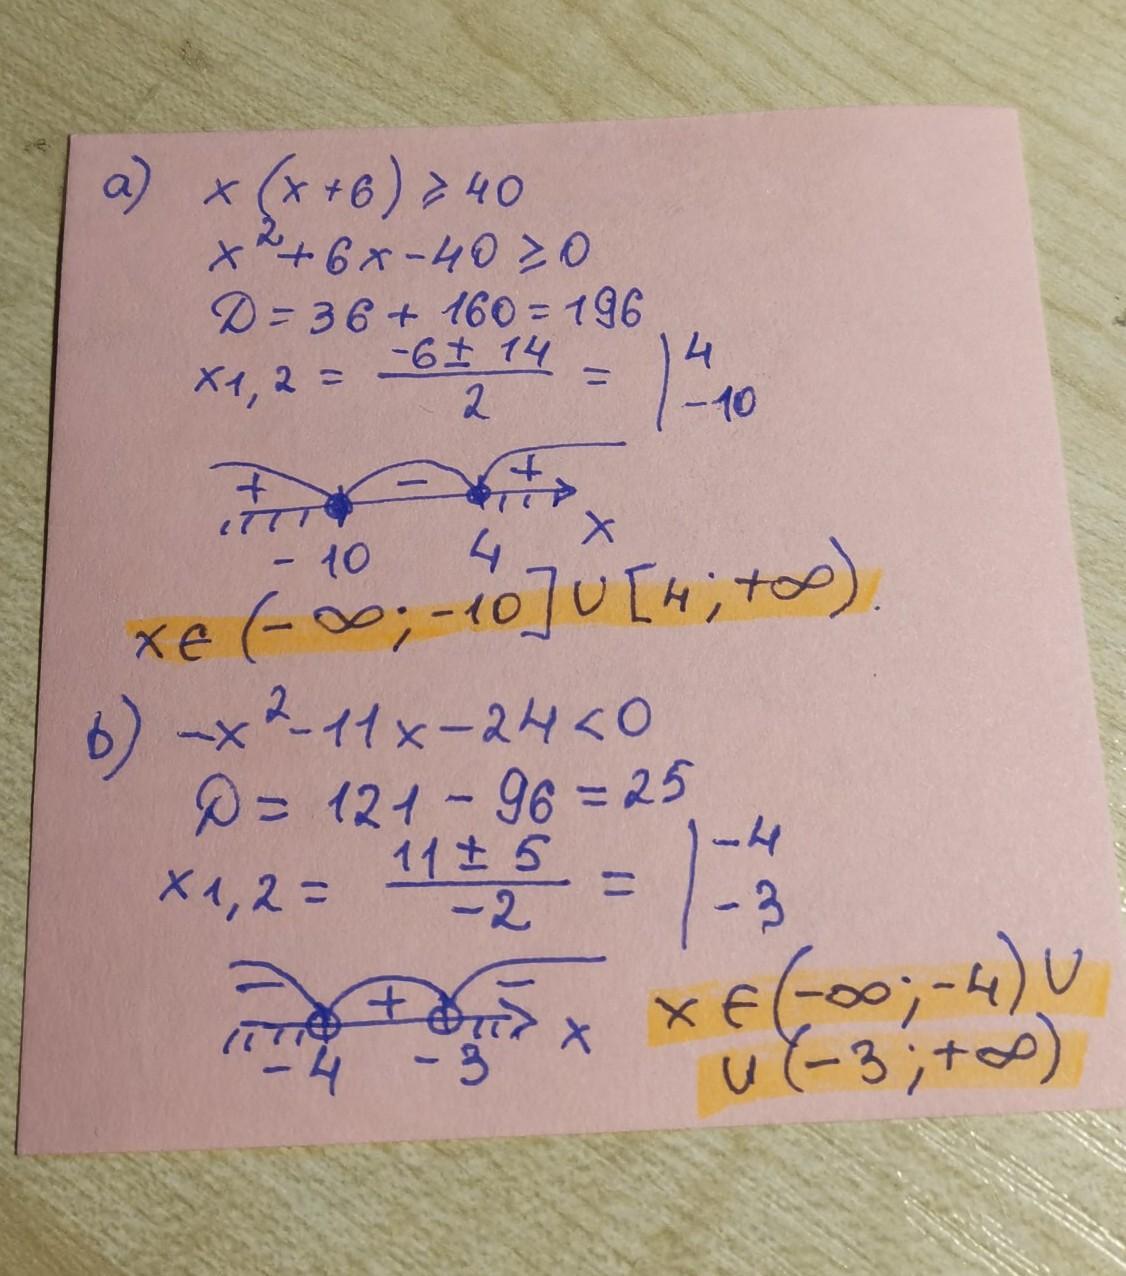 a) x(x+6) ≥ 40
x²+6x-40 ≥ 0
D = 36 + 160 = 196
x1,2 = (-6 ± 14)/2 = | 4 -10
+ - +
-10 4 x
x ∈ (-∞; -10] ∪ [4; +∞).
b) -x²-11x-24 < 0
D = 121 - 96 = 25
x1,2 = (11 ± 5)/-2 = | -4 -3
- + -
-4 -3 x
x ∈ (-∞; -4) ∪
∪ (-3; +∞)